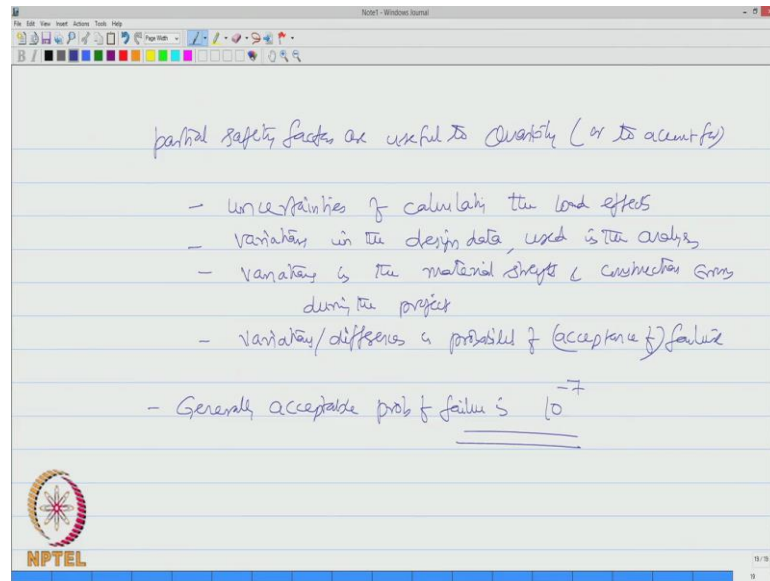 Note1 - Windows Journal
File Edit View Insert Actions Tools Help
Page Width
B I
partial safety factors are useful to Quantify (or to account for)
- uncertainties of calculating the load effects
- variations in the design data, used in the analysis
- variations in the material strength & construction errors
during the project
- variations/differences in probabilities of (acceptance of) failure
- Generally acceptable prob of failure is 10⁻⁷
NPTEL
19 / 19
19